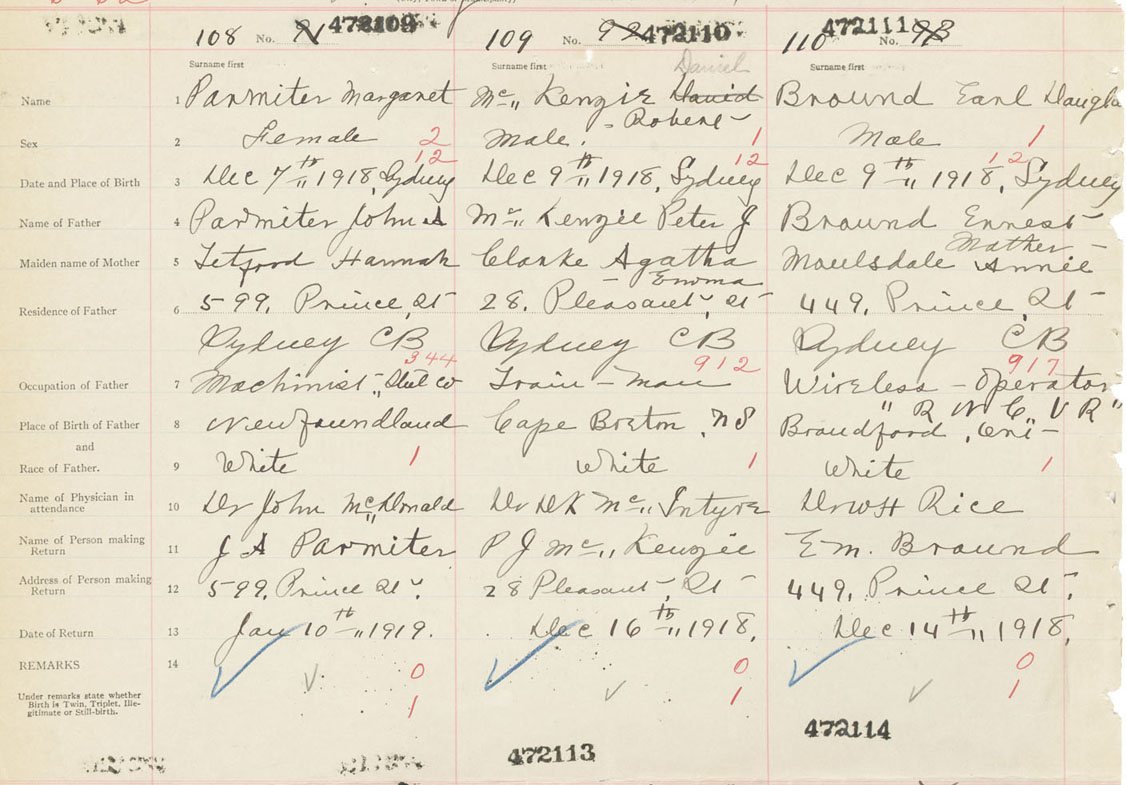 472109 472110 472111
108 No. 91 109 No. 92 110 No. 93
Surname first Surname first Surname first
Daniel
Name 1 Parmiter Margaret Mc„ Kenzie David Braund Earl Dougla
- Robert -
Sex 2 Female 2 Male. 1 Male 1
12 12 12
Date and Place of Birth 3 Dec 7th„ 1918, Sydney Dec 9th„ 1918, Sydney Dec 9th„ 1918, Sydney
Name of Father 4 Parmiter John A Mc„ Kenzie Peter J Braund Ernest
Mather -
Maiden name of Mother 5 Titford Hannah Clarke Agatha Moulsdale Annie
Emma
Residence of Father 6 599, Prince St 28, Pleasant St 449, Prince, St
Sydney CB Sydney CB Sydney CB
344 912 917
Occupation of Father 7 Machinist, Steel Co Train - man Wireless - Operator
" R N C V R "
Place of Birth of Father 8 Newfoundland Cape Breton, NS Brandford, Ont -
and
Race of Father. 9 White 1 White 1 White 1
Name of Physician in
attendance 10 Dr John Mc„Donald Dr DK Mc„ Intyre Dr WH Rice
Name of Person making
Return 11 J A Parmiter P J Mc„ Kenzie E m. Braund
Address of Person making
Return 12 599, Prince St. 28 Pleasant, St 449, Prince St.
Date of Return 13 Jan 10th„ 1919. Dec 16th„ 1918, Dec 14th„ 1918,
REMARKS 14 0 0 0
Under remarks state whether
Birth is Twin, Triplet, Ille-
gitimate or Still-birth. 1 1 1
472113 472114